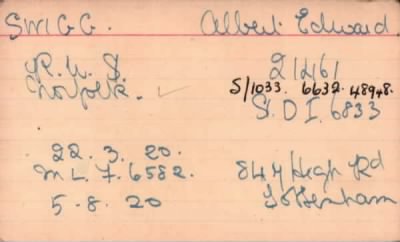 SWIGG. Albert Edward
R.W.S. 21461
Norfolk. S/1033. 6632. 48948.
S.D.I. 6833
22. 3. 20. 847 High Rd
M L. 7. 6582. Tottenham
5. 8. 20